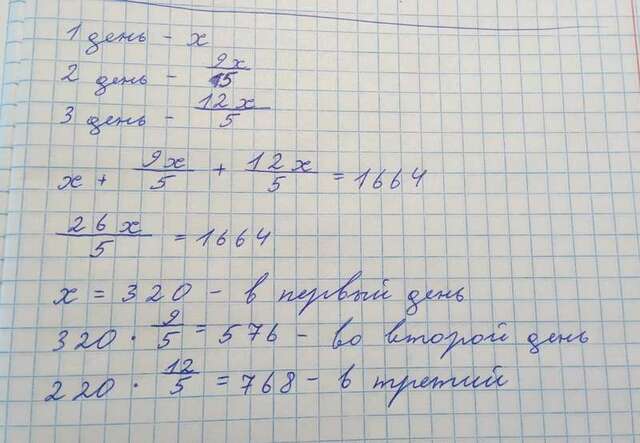 1 день - x
2 день - 9x/5
3 день - 12x/5
x + 9x/5 + 12x/5 = 1664
26x/5 = 1664
x = 320 - в первый день
320 · 9/5 = 576 - во второй день
220 · 12/5 = 768 - в третий